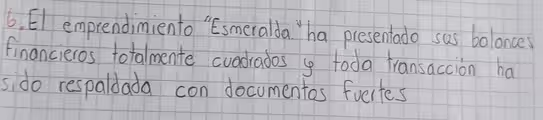 6. El emprendimiento "Esmeralda" ha presentado sus balances
financieros totalmente cuadrados y toda transacción ha
sido respaldada con documentos fuertes